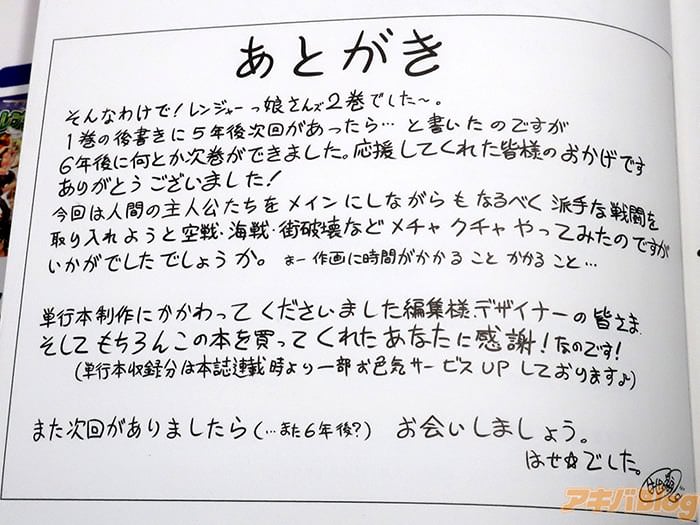 あとがき
そんなわけで!レンジャーっ娘さんズ2巻でした〜。
1巻の後書きに5年後次回があったら…と書いたのですが
6年後に何とか次巻ができました。応援してくれた皆様のおかげです
ありがとうございました!
今回は人間の主人公たちをメインにしながらもなるべく派手な戦闘を
取り入れようと空戦・海戦・街破壊などメチャクチャやってみたのですが
いかがでしたでしょうか。まー作画に時間がかかることかかること…
単行本制作にかかわってくださいました編集様、デザイナーの皆さま、
そしてもちろんこの本を買ってくれたあなたに感謝!なのです!
(単行本収録分は本誌連載時より一部お色気サービスUPしております♪)
また次回がありましたら(…また6年後?) お会いしましょう。
はせ☆でした。
アキバBlog